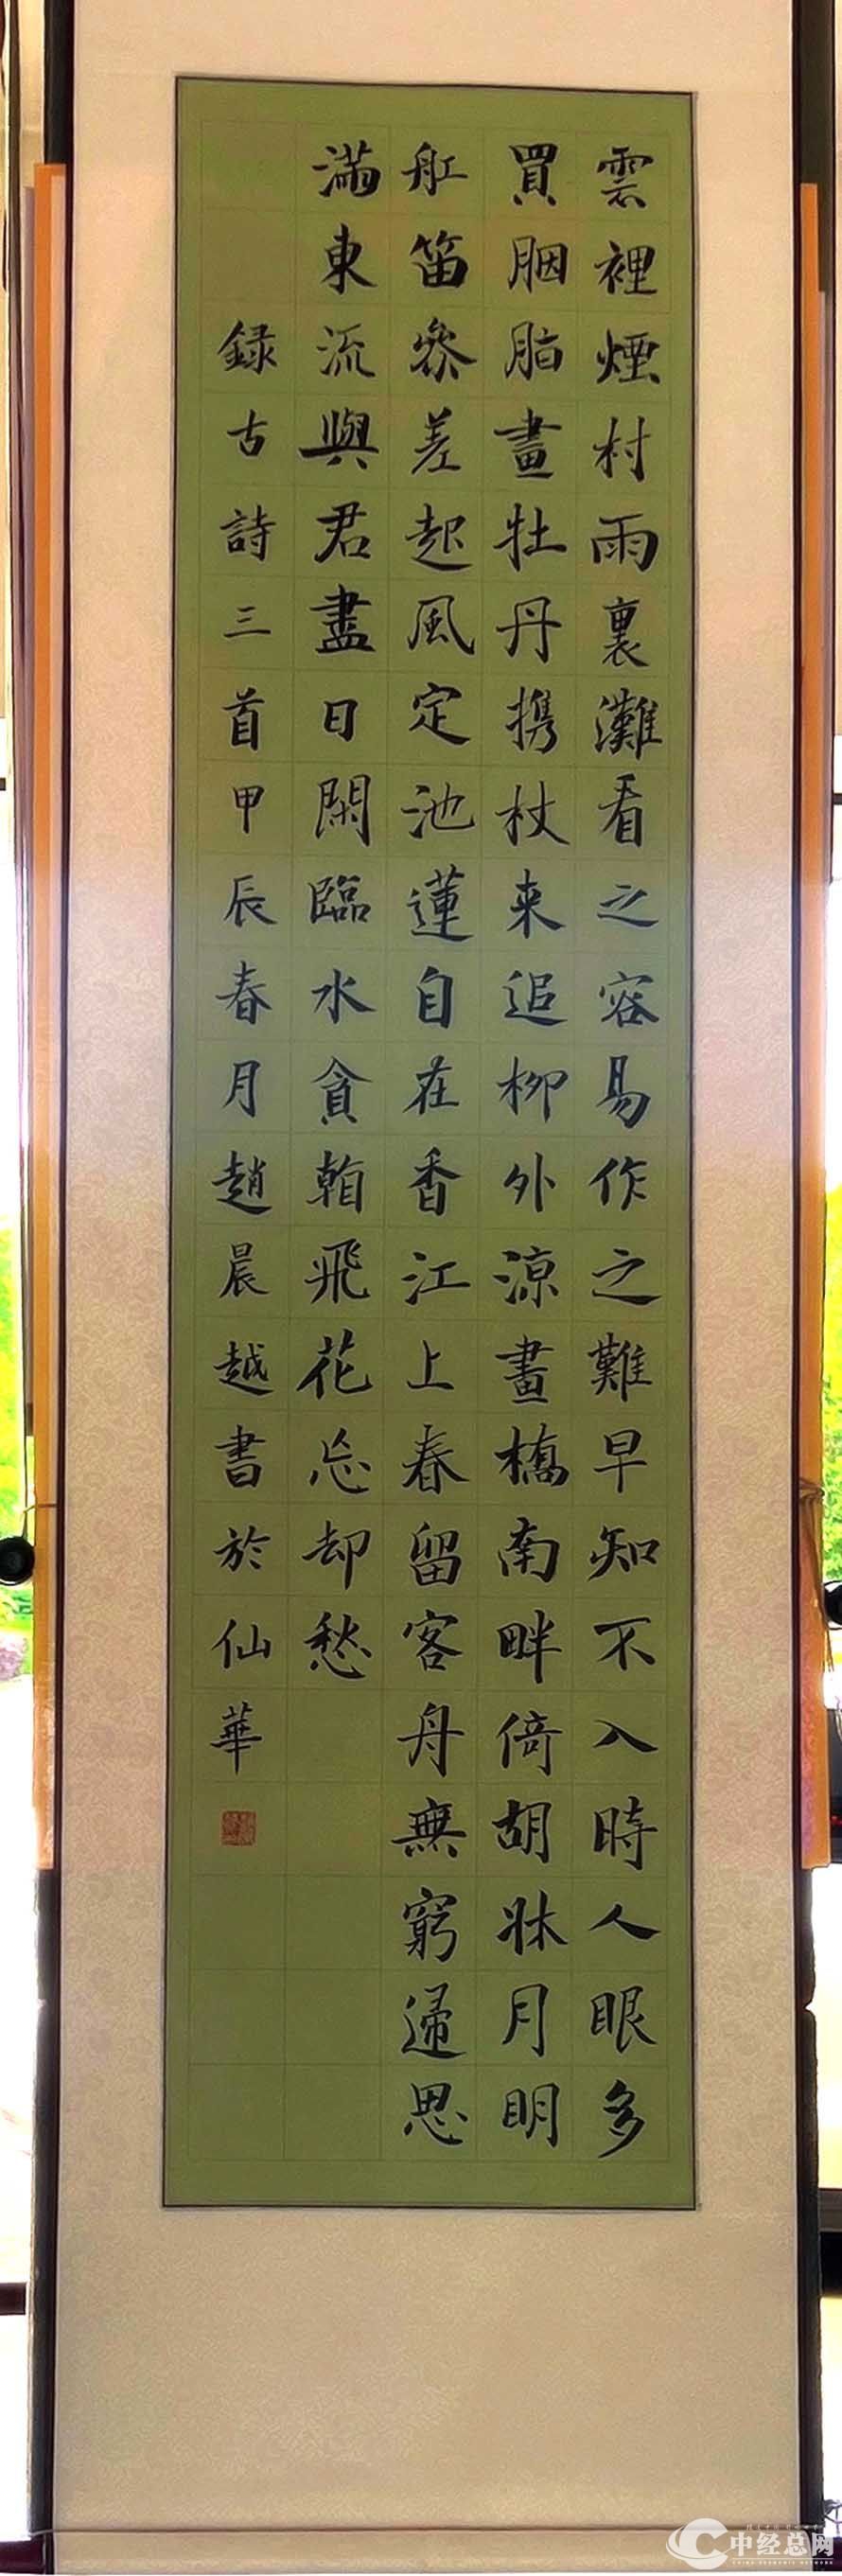 雲裡煙村雨裏灘看之容易作之難早知不入時人眼多
買胭脂畫牡丹携杖来追柳外涼畫橋南畔倚胡牀月明
船笛參差起風定池蓮自在香江上春留客舟無窮歸思
滿東流與君盡日閑臨水貪看飛花忘却愁
録古詩三首甲辰春月趙晨越書於仙華
中经总网
CHINA ECONOMIC NETWORK